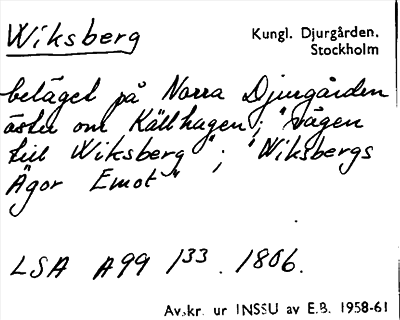 Wiksberg
Kungl. Djurgården.
Stockholm
beläget på Norra Djurgården
öster om Källhagen; "vägen
till Wiksberg"; "Wiksbergs
Ägor Emot"
LSA A99 1³³. 1806.
Av.kr. ur INSSU av E.B. 1958-61